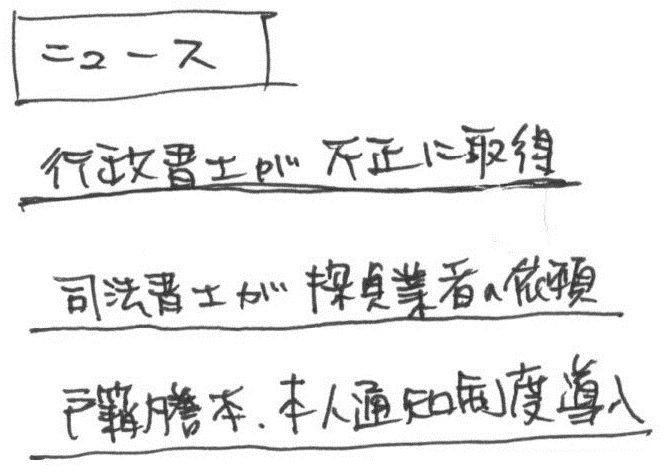 ニュース
行政書士が 不正に取得
司法書士が 探偵業者の依頼
戸籍謄本、本人通知制度導入